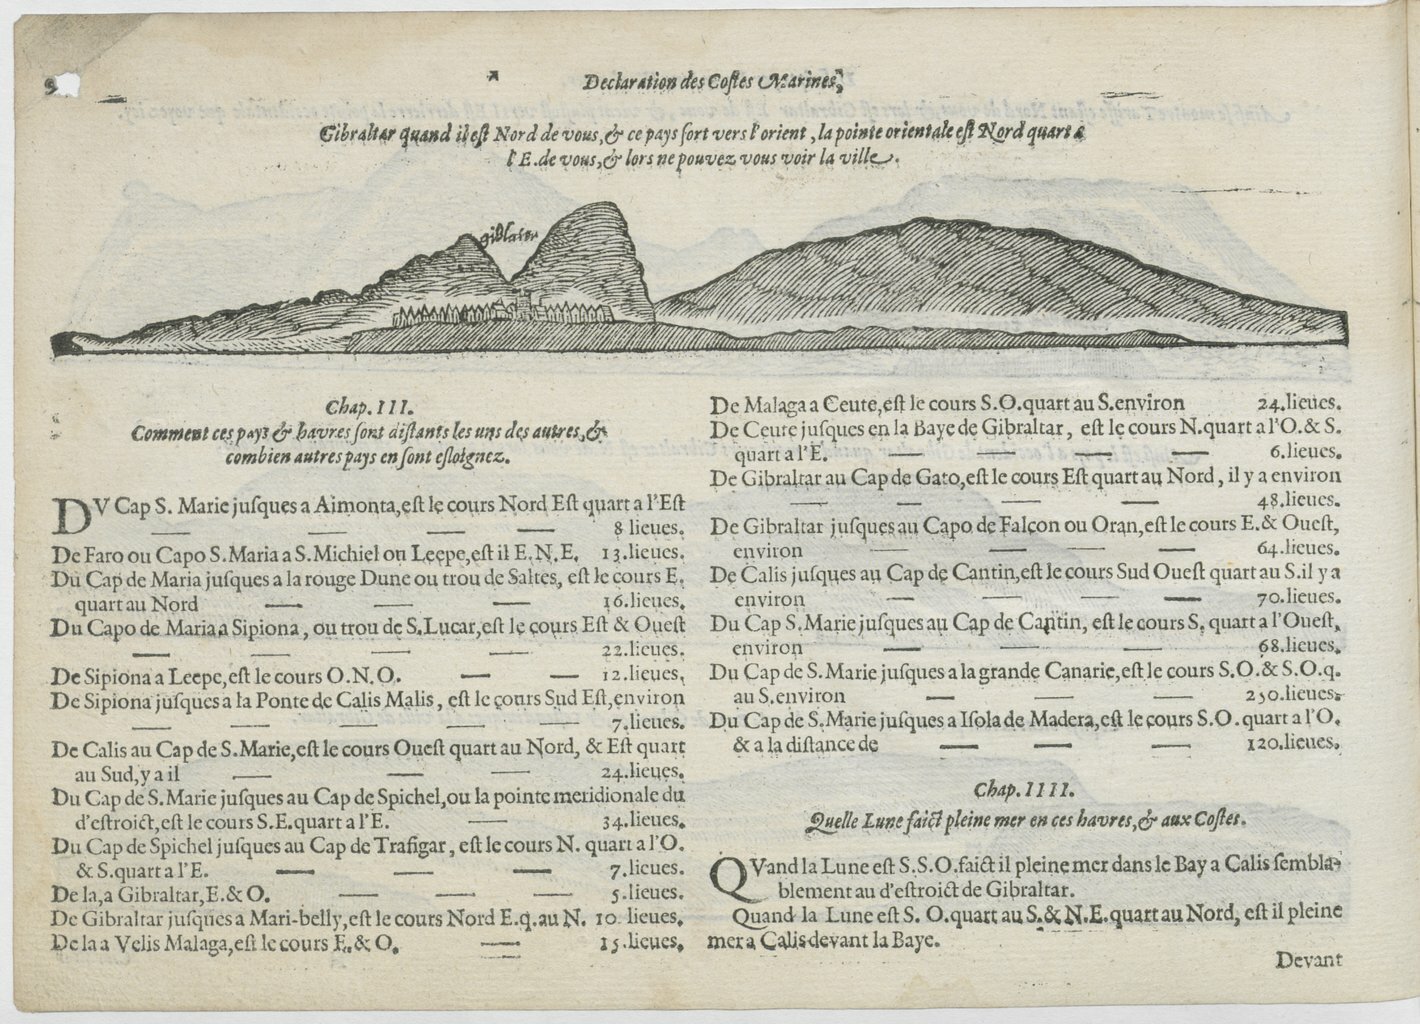 Declaration des Costes Marines,
Gibraltar quand il est Nord de vous, & ce pays sort vers l'orient, la pointe orientale est Nord quart a
l'E. de vous, & lors ne pouvez vous voir la ville.
giblater
Chap. III.
Comment ces pays & havres sont distants les uns des autres, &
combien autres pays en sont esloignez.
DV Cap S. Marie jusques a Aimonta, est le cours Nord Est quart a l'Est
8 lieues.
De Faro ou Capo S. Maria a S. Michiel ou Leepe, est il E. N. E. 13. lieues.
Du Cap de Maria jusques a la rouge Dune ou trou de Saltes, est le cours E.
quart au Nord 16. lieues.
Du Capo de Maria a Sipiona, ou trou de S. Lucar, est le cours Est & Ouest
22. lieues.
De Sipiona a Leepe, est le cours O. N. O. 12. lieues.
De Sipiona jusques a la Ponte de Calis Malis, est le cours Sud Est, environ
7. lieues.
De Calis au Cap de S. Marie, est le cours Ouest quart au Nord, & Est quart
au Sud, y a il 24. lieues.
Du Cap de S. Marie jusques au Cap de Spichel, ou la pointe meridionale du
d'estroict, est le cours S. E. quart a l'E. 34. lieues.
Du Cap de Spichel jusques au Cap de Trafigar, est le cours N. quart a l'O.
& S. quart a l'E. 7. lieues.
De la, a Gibraltar, E. & O. 5. lieues.
De Gibraltar jusques a Mari-belly, est le cours Nord E. q. au N. 10 lieues.
De la a Velis Malaga, est le cours E. & O. 15. lieues.
De Malaga a Ceute, est le cours S. O. quart au S. environ 24. lieues.
De Ceute jusques en la Baye de Gibraltar, est le cours N. quart a l'O. & S.
quart a l'E. 6. lieues.
De Gibraltar au Cap de Gato, est le cours Est quart au Nord, il y a environ
48. lieues.
De Gibraltar jusques au Capo de Falcon ou Oran, est le cours E. & Ouest,
environ 64. lieues.
De Calis jusques au Cap de Cantin, est le cours Sud Ouest quart au S. il y a
environ 70. lieues.
Du Cap S. Marie jusques au Cap de Cantin, est le cours S. quart a l'Ouest,
environ 68. lieues.
Du Cap de S. Marie jusques a la grande Canarie, est le cours S. O. & S. O. q.
au S. environ 250. lieues.
Du Cap de S. Marie jusques a Isola de Madera, est le cours S. O. quart a l'O.
& a la distance de 120. lieues.
Chap. IIII.
Quelle Lune faict pleine mer en ces havres, & aux Costes.
QVand la Lune est S. S. O. faict il pleine mer dans le Bay a Calis sembla-
blement au d'estroict de Gibraltar.
Quand la Lune est S. O. quart au S. & N. E. quart au Nord, est il pleine
mer a Calis devant la Baye.
Devant